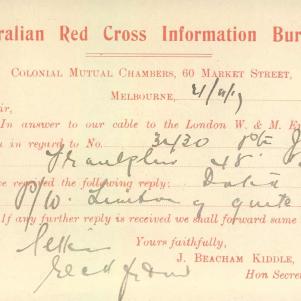 ralian Red Cross Information Bur
COLONIAL MUTUAL CHAMBERS, 60 MARKET STREET,
MELBOURNE,
ir,
In answer to our cable to the London W. & M. E
in regard to No. 3430 Pte J
48
ve received the following reply:
P/W. Limburg quite
If any further reply is received we shall forward same
Yours faithfully,
J. BEACHAM KIDDLE,
Hon Secre